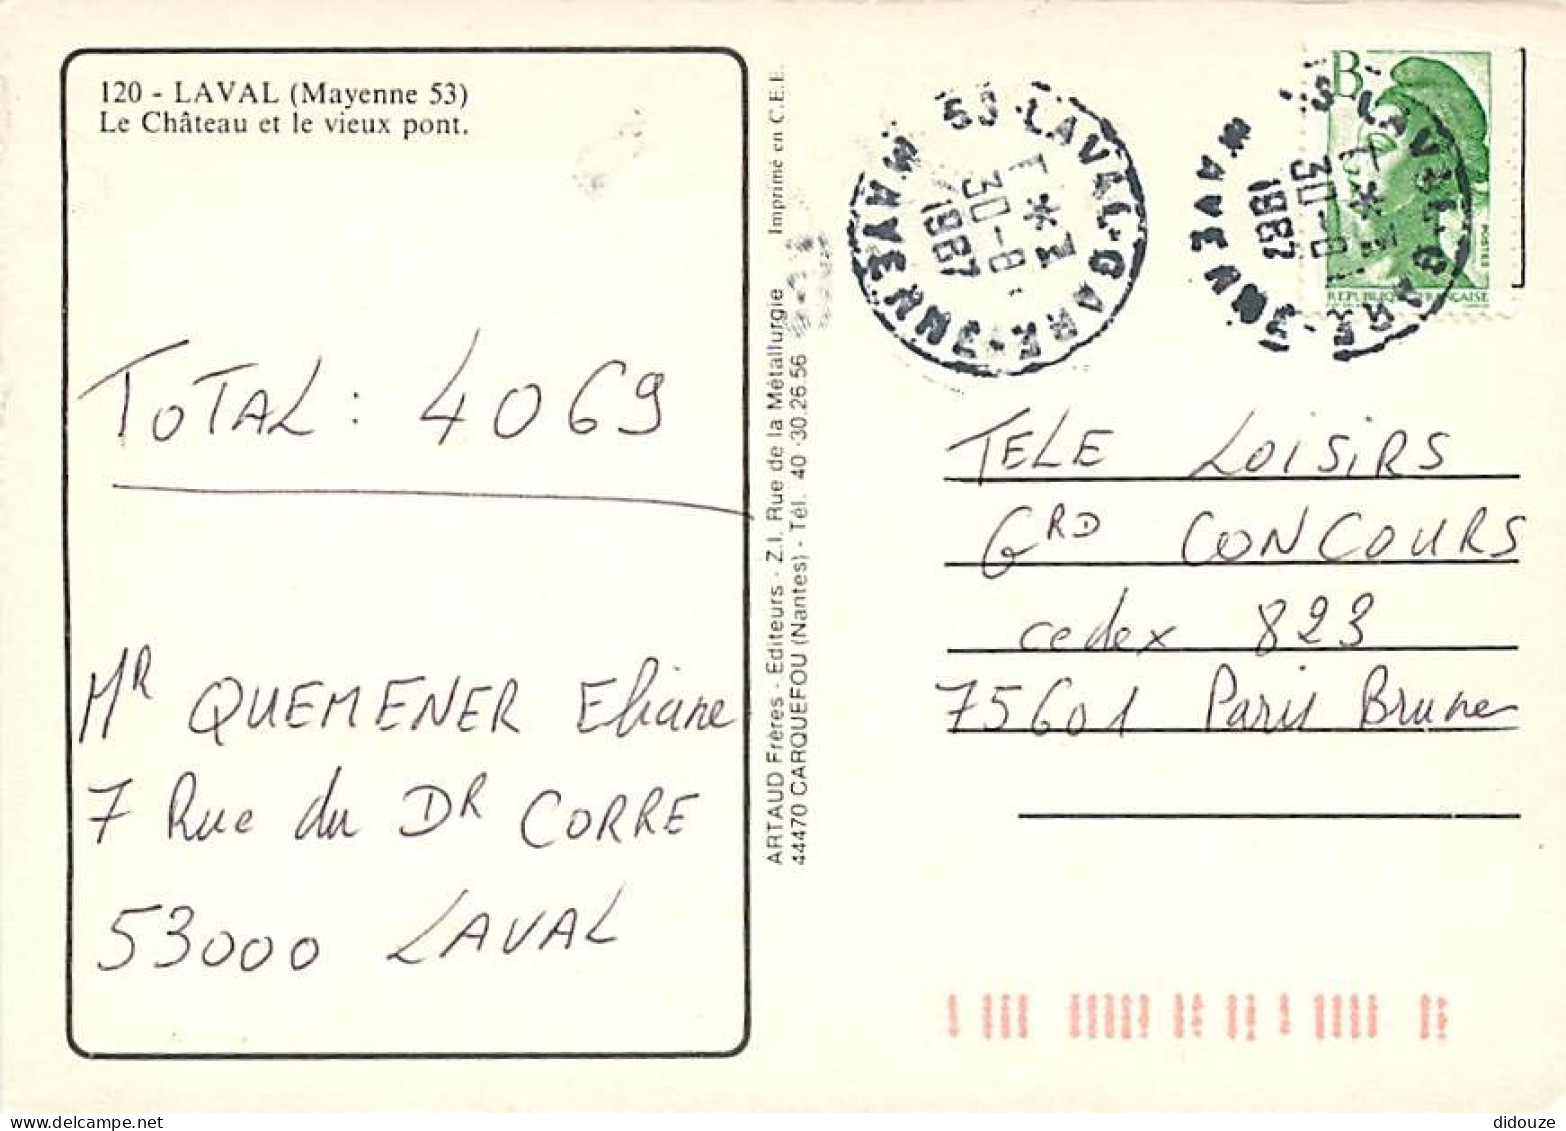 120 - LAVAL (Mayenne 53)
Le Château et le vieux pont.
TOTAL : 4069
MR QUEMENER Eliane
7 Rue du DR CORRE
53000 LAVAL
ARTAUD Frères - Editeurs - Z.I. Rue de la Métallurgie Imprimé en C.E.E.
44470 CARQUEFOU (Nantes) - Tél. 40 .30.26.56
53 LAVAL-GARE
MAYENNE
30-8
1987
B
POSTES
REPUBLIQUE FRANÇAISE
LAVAL-GARE
MAYENNE
30-8
1987
TELE LOISIRS
GRD CONCOURS
cedex 823
75601 Paris Brune
didouze